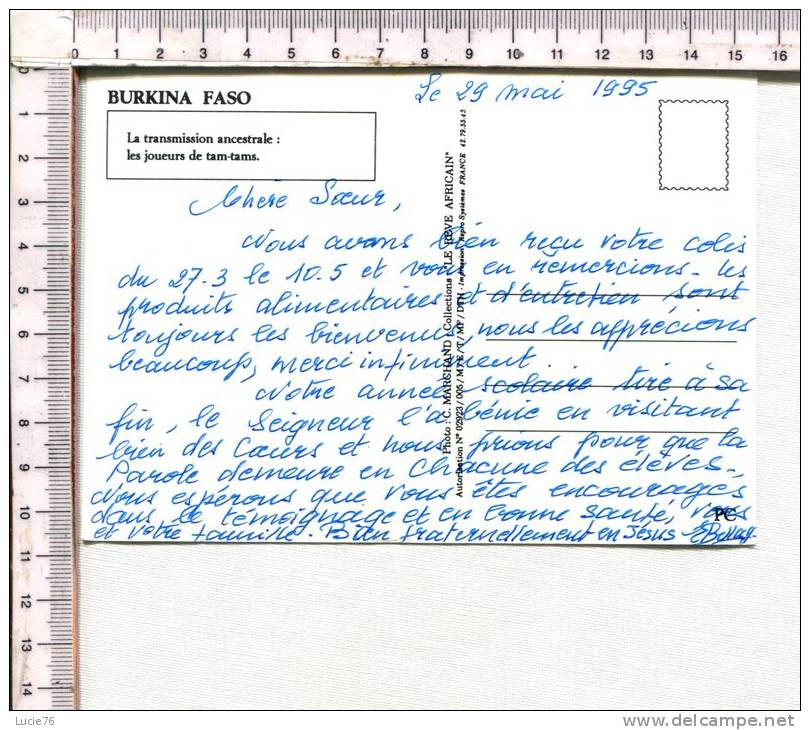 0 1 2 3 4 5 6 7 8 9 10 11 12 13 14 15 16
BURKINA FASO
La transmission ancestrale :
les joueurs de tam-tams.
Le 29 mai 1995
Chère Sœur,
Nous avons bien reçu votre colis
du 27.3 le 10.5 et vous en remercions. Les
produits alimentaires et d'entretien sont
toujours les bienvenus, nous les apprécions
beaucoup, merci infiniment.
Notre année scolaire tire à sa
fin, le Seigneur l'a bénie en visitant
bien des Cœurs et nous prions pour que la
Parole demeure en Chacune des élèves.
Nous espérons que vous êtes encouragés
dans le témoignage et en bonne santé, vous
et votre famille. Bien fraternellement en Jésus
Photo : C. MARCHAND - Collections "LE REVE AFRICAIN"
Autorisation N° 02923 / 005 / MTE /T / MF / DTH - Impression Repro Systèmes FRANCE 42.79.55.43
PC
0 1 2 3 4 5 6 7 8 9 10 11 12 13 14
Lucie76
delcampe.net